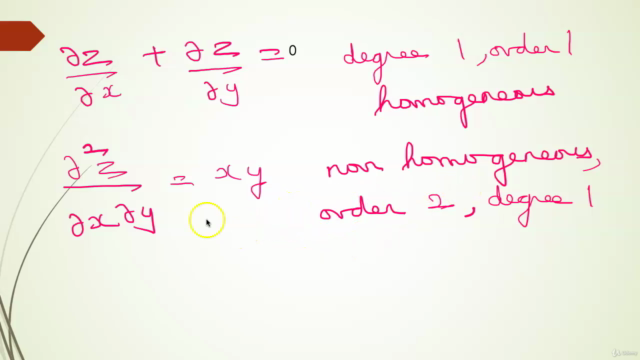 ∂z/∂x + ∂z/∂y = 0 degree 1, order 1
homogeneous
∂²z/∂x∂y = xy non homogeneous,
order 2, degree 1